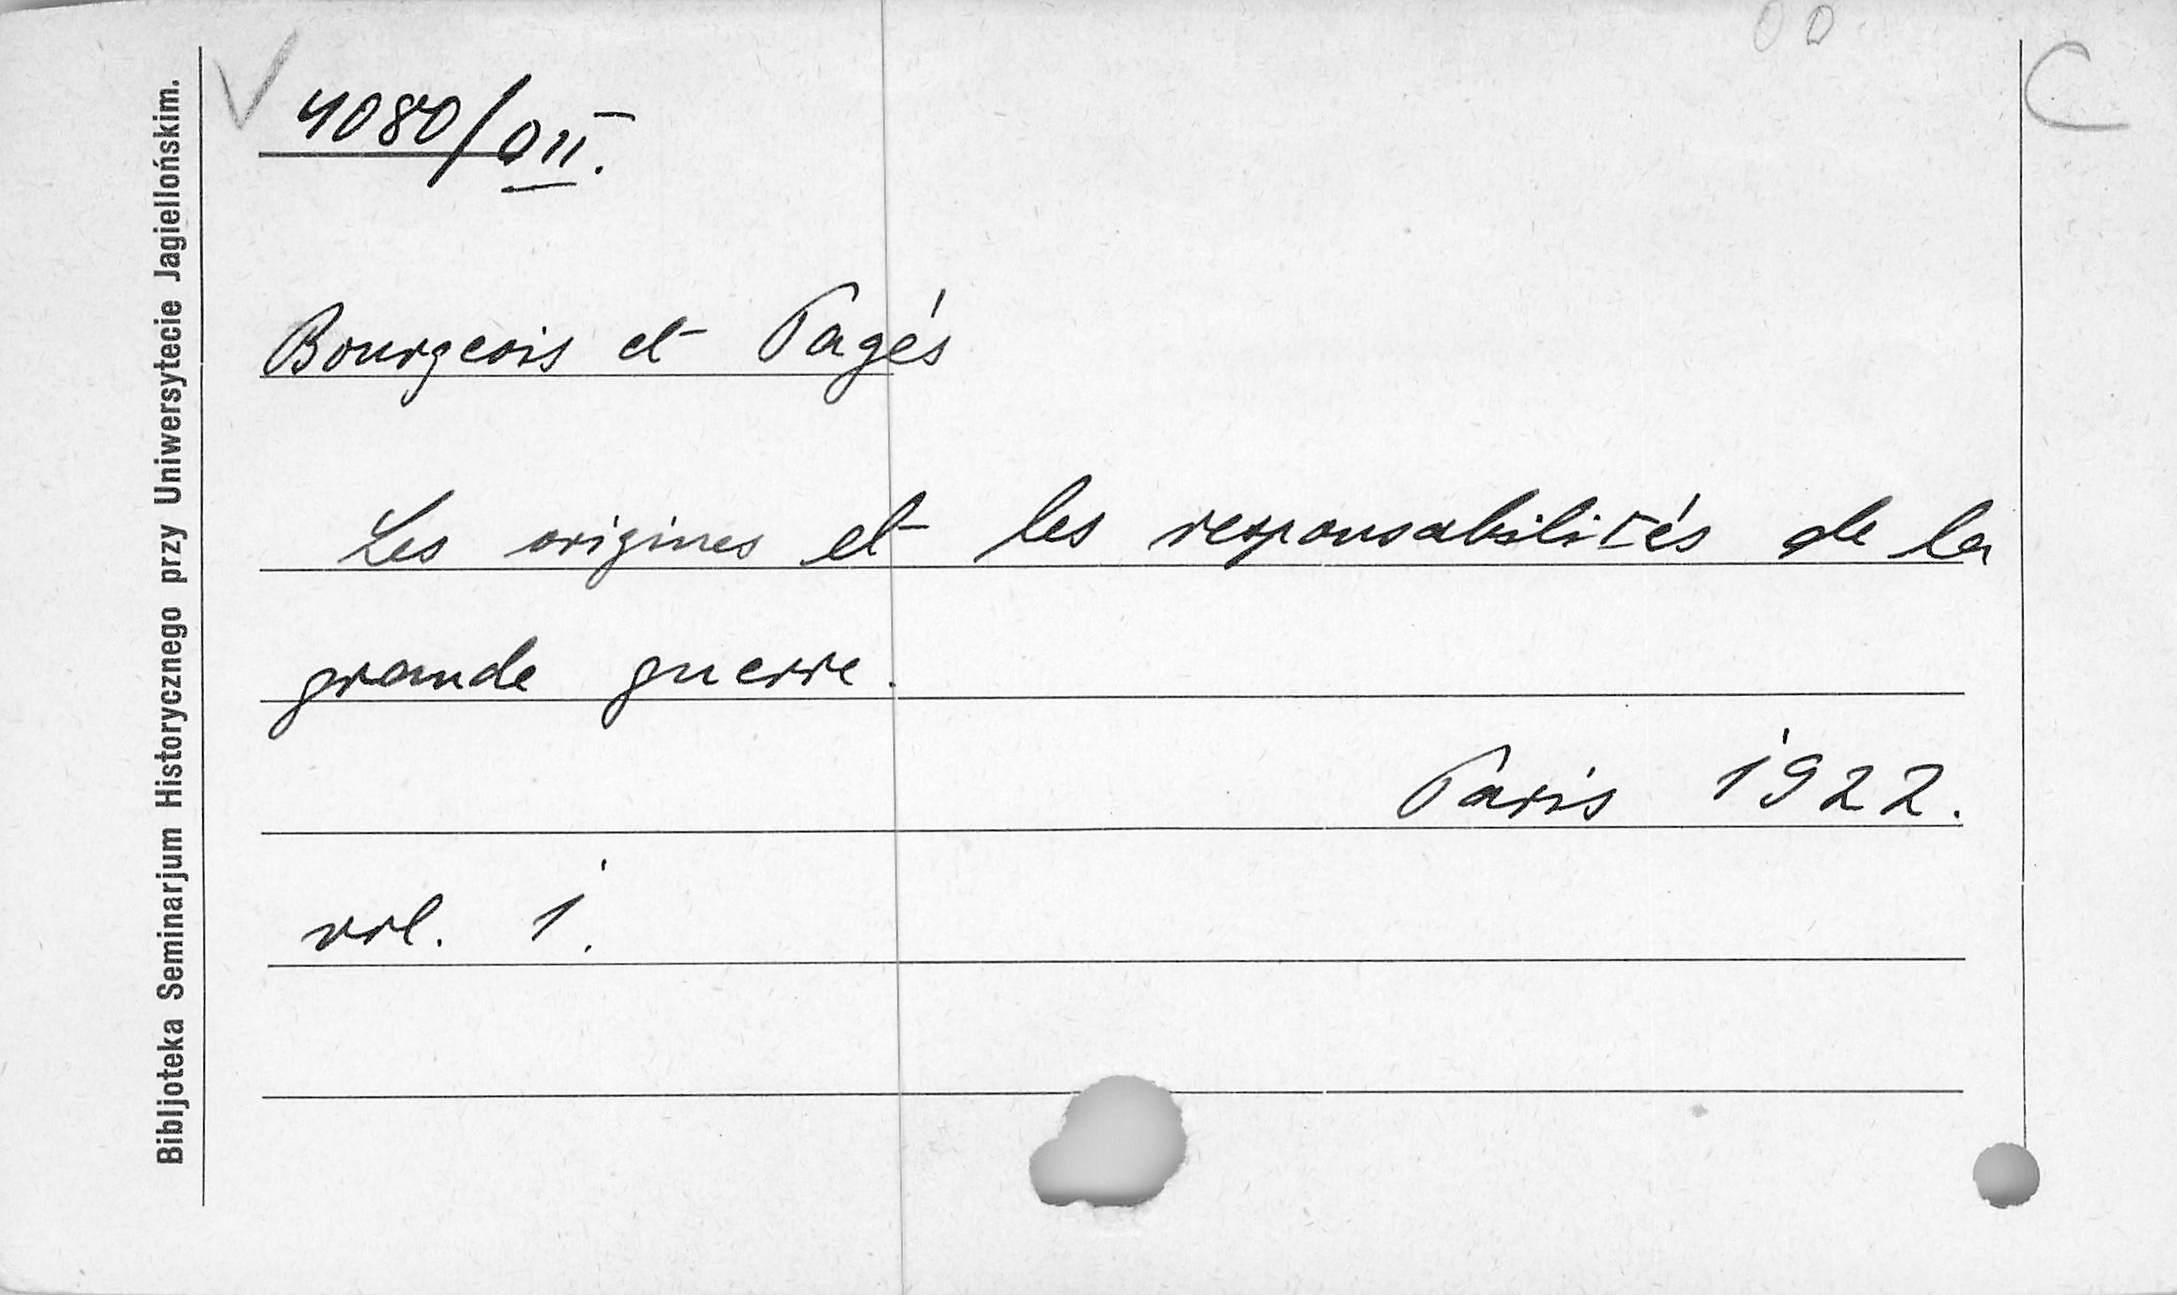 4080/OII.
Bourgeois et Pagés
Les origines et les responsabilités de la
grande guerre.
Paris 1922.
vol. 1.
Bibljoteka Seminarjum Historycznego przy Uniwersytecie Jagiellońskim.